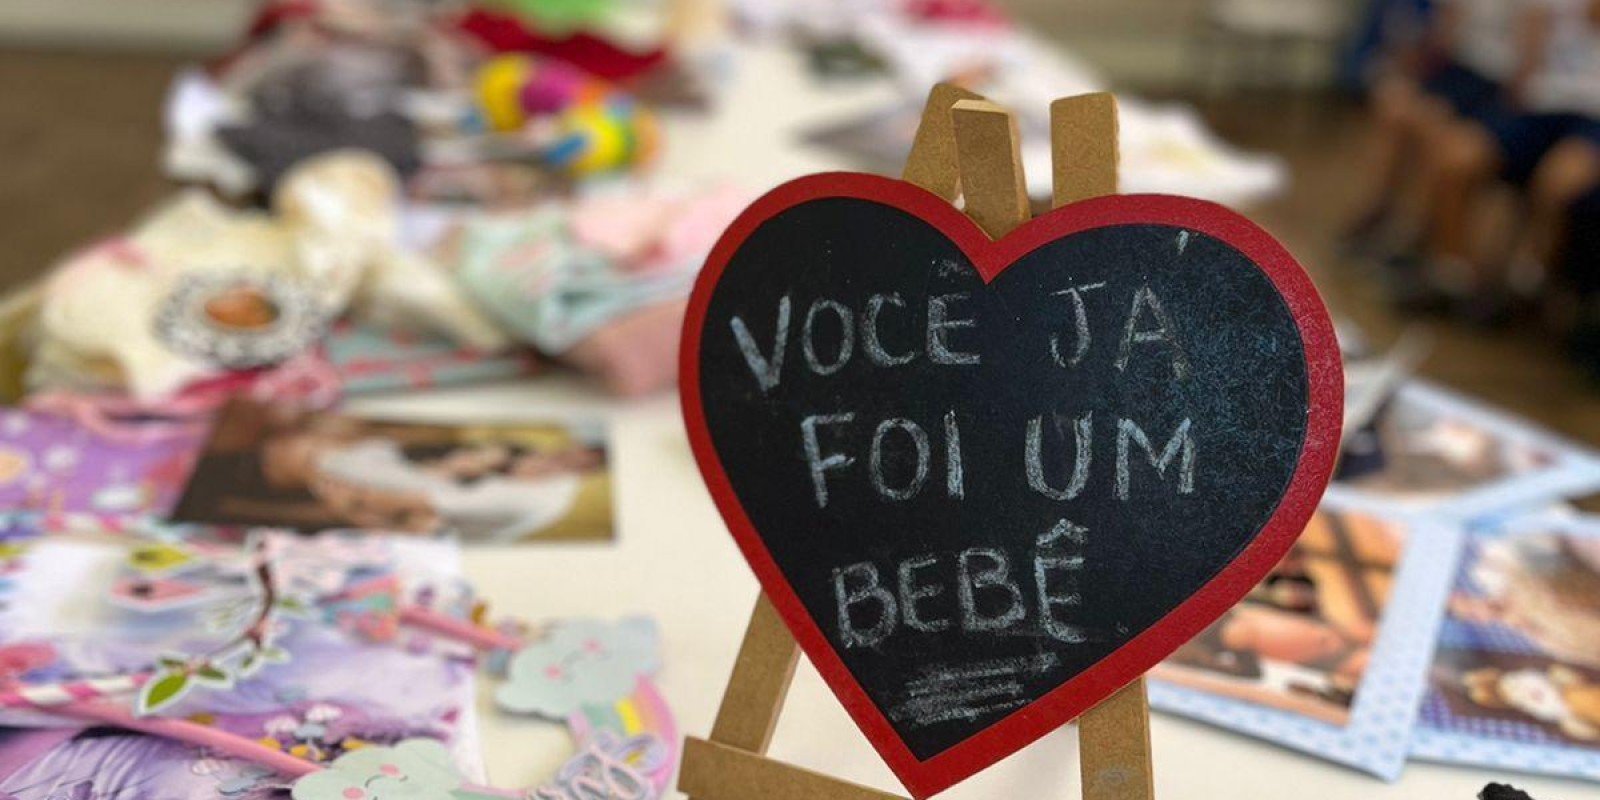 VOCÊ JÁ
FOI UM
BEBÊ